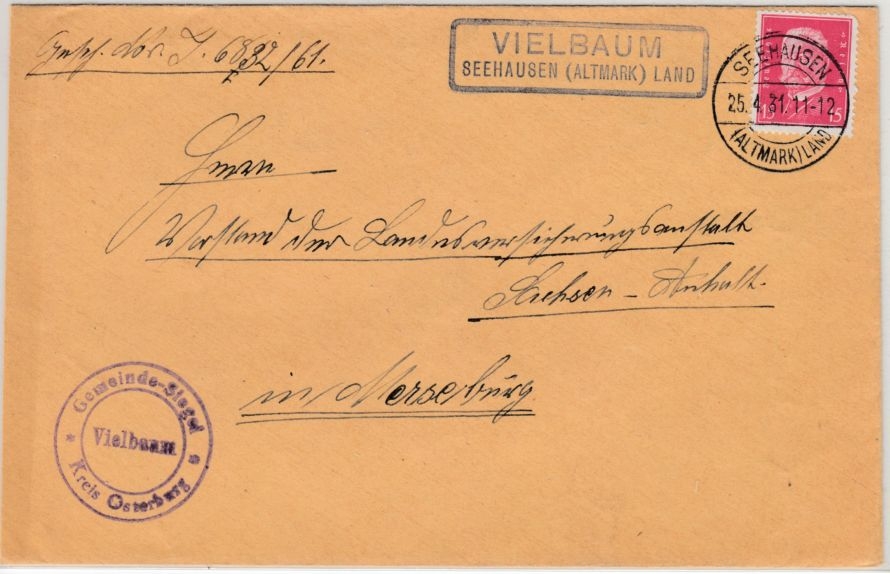 Gesch. Nr. I. 6832/61.
VIELBAUM
SEEHAUSEN (ALTMARK) LAND
SEEHAUSEN
25.4.31.11-12
(ALTMARK) LAND
15 15
Herrn
Vorstand der Landesversicherungsanstalt
Sachsen-Anhalt.
in Merseburg
Gemeinde-Siegel
* Vielbaum *
Kreis Osterburg